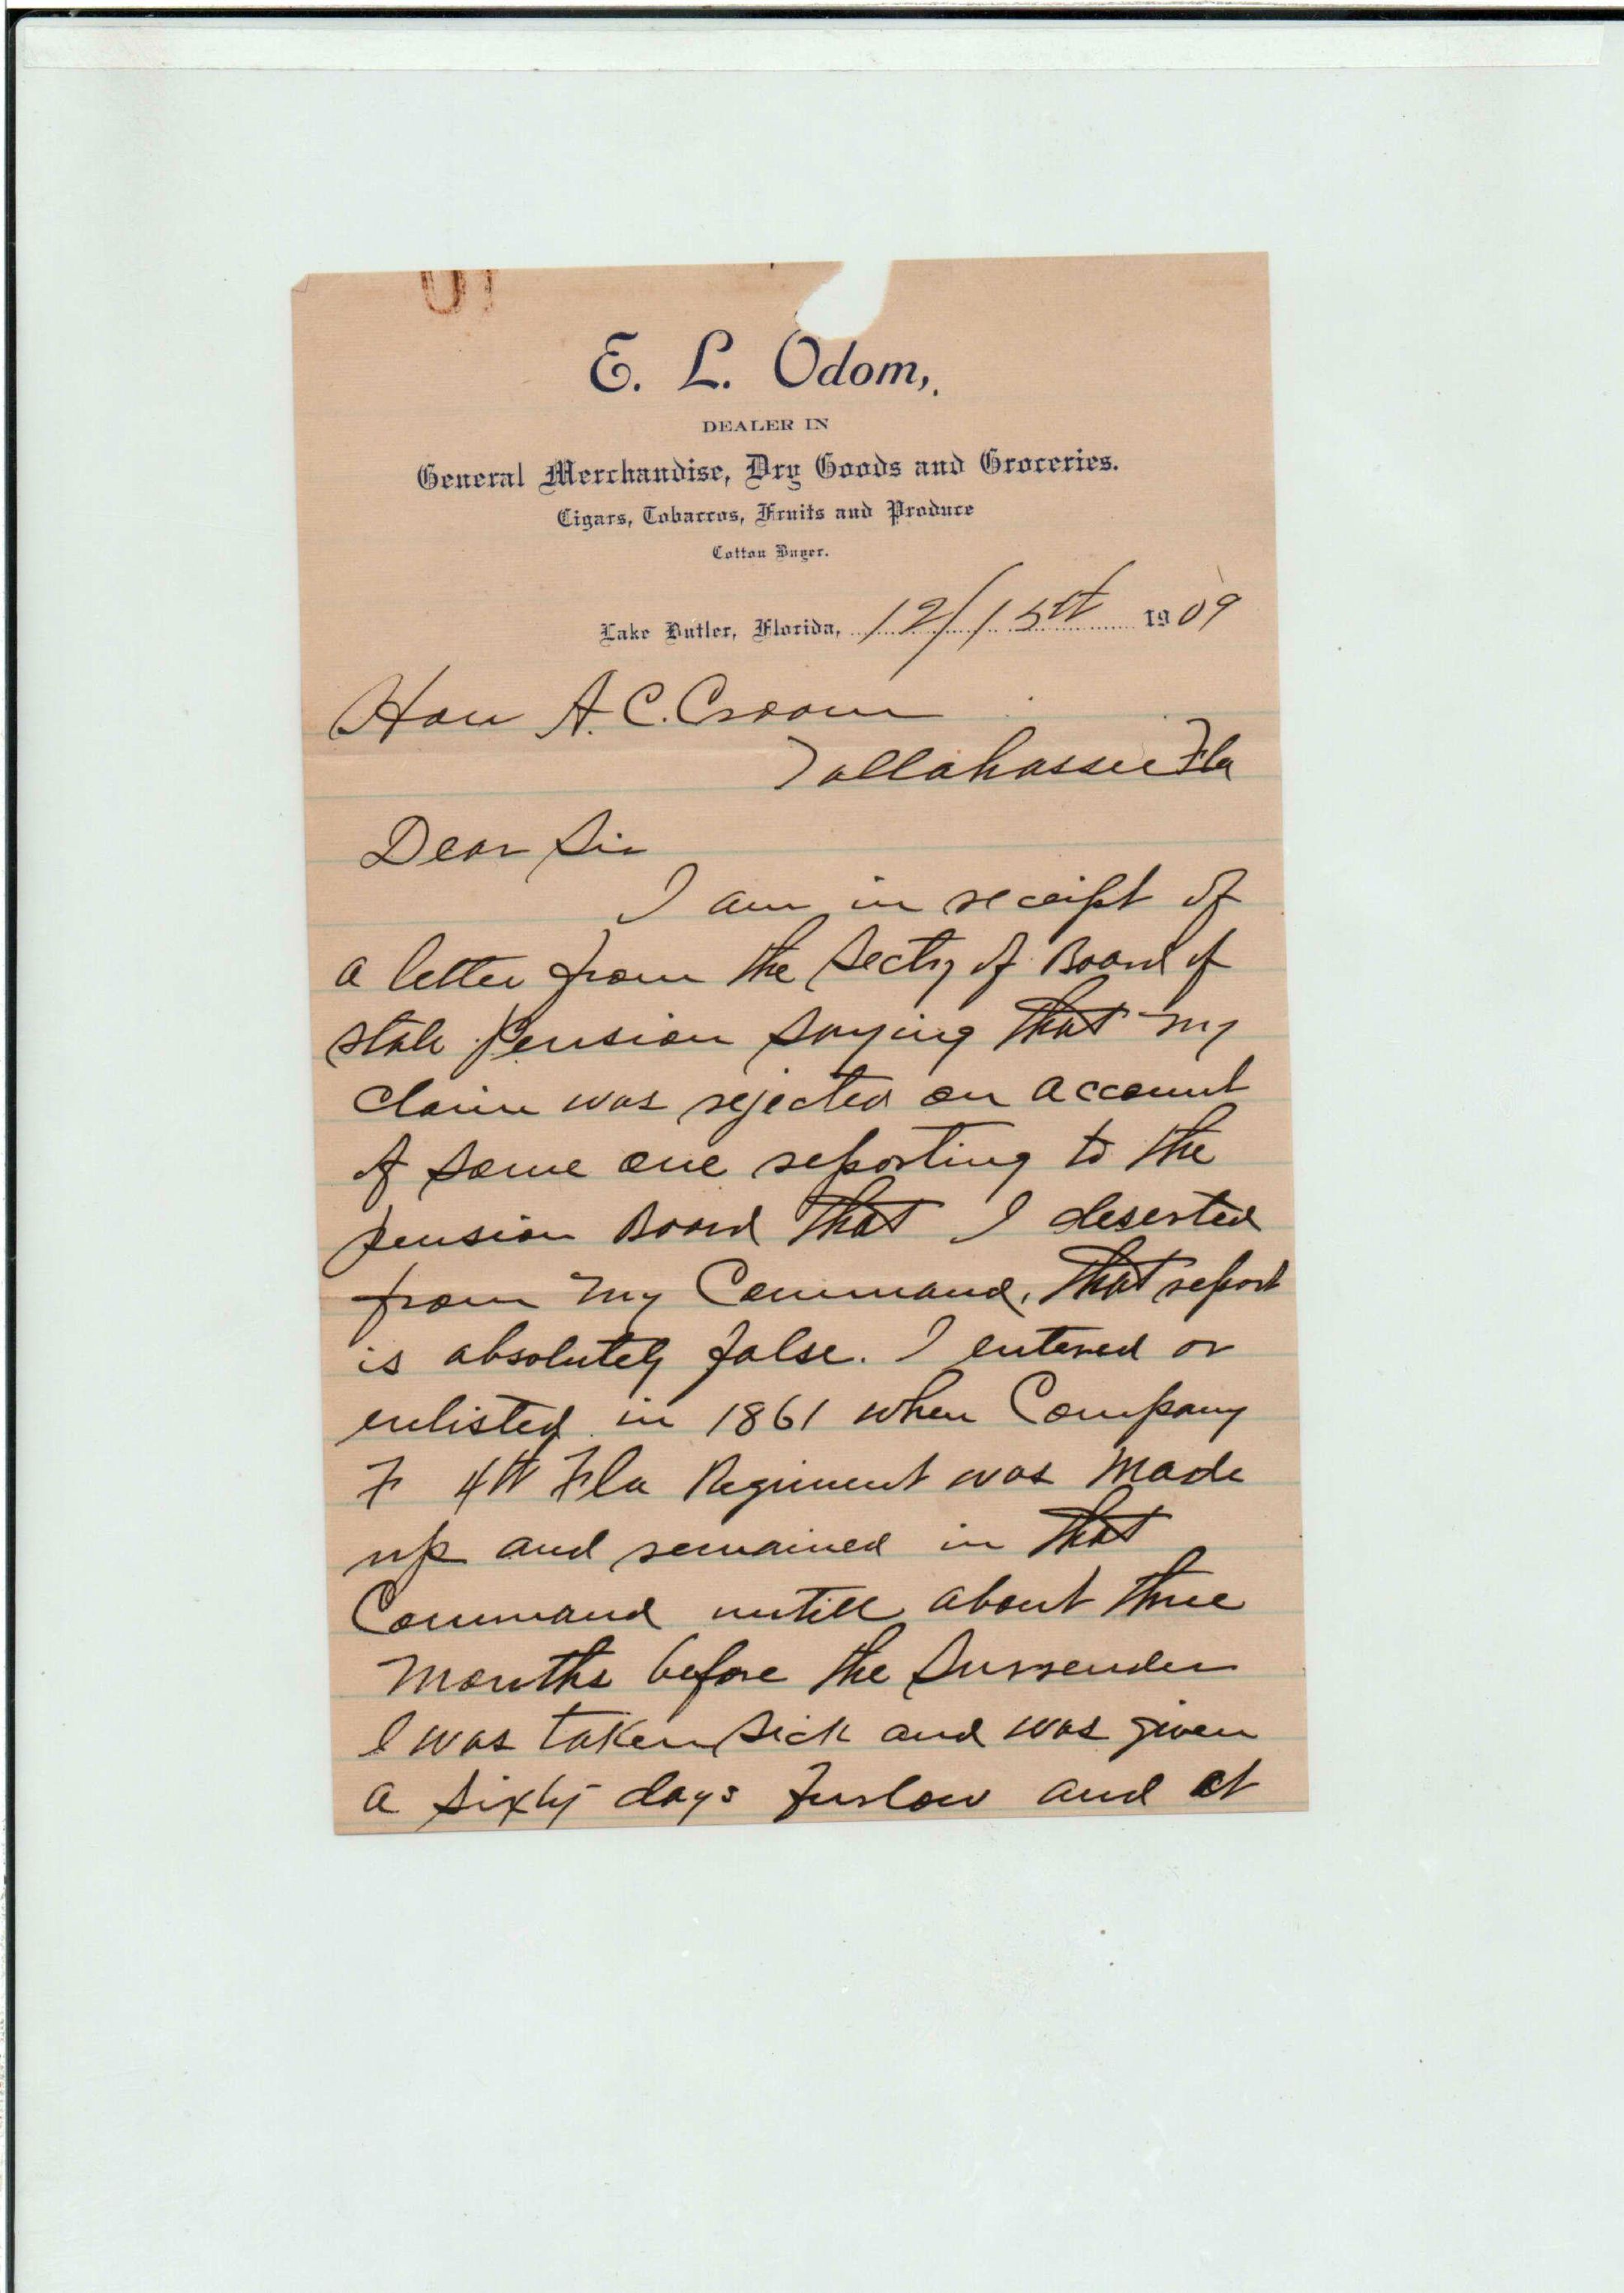 E. L. Odom,.
DEALER IN
General Merchandise, Dry Goods and Groceries.
Cigars, Tobaccos, Fruits and Produce
Cotton Buyer.
Lake Butler, Florida, 12/15th 1909
Hon A. C. Croom
Tallahassee Fla
Dear Sir
I am in receipt of
a letter from the Secty of Board of
state Pension saying that my
claim was rejected on account
of some one reporting to the
pension Board that I deserted
from my Command, that report
is absolutely false. I entered or
enlisted in 1861 when Company
F 4th Fla Regiment was made
up and remained in that
Command untill about three
months before the Surrender
I was taken sick and was given
a sixty days furlow and at